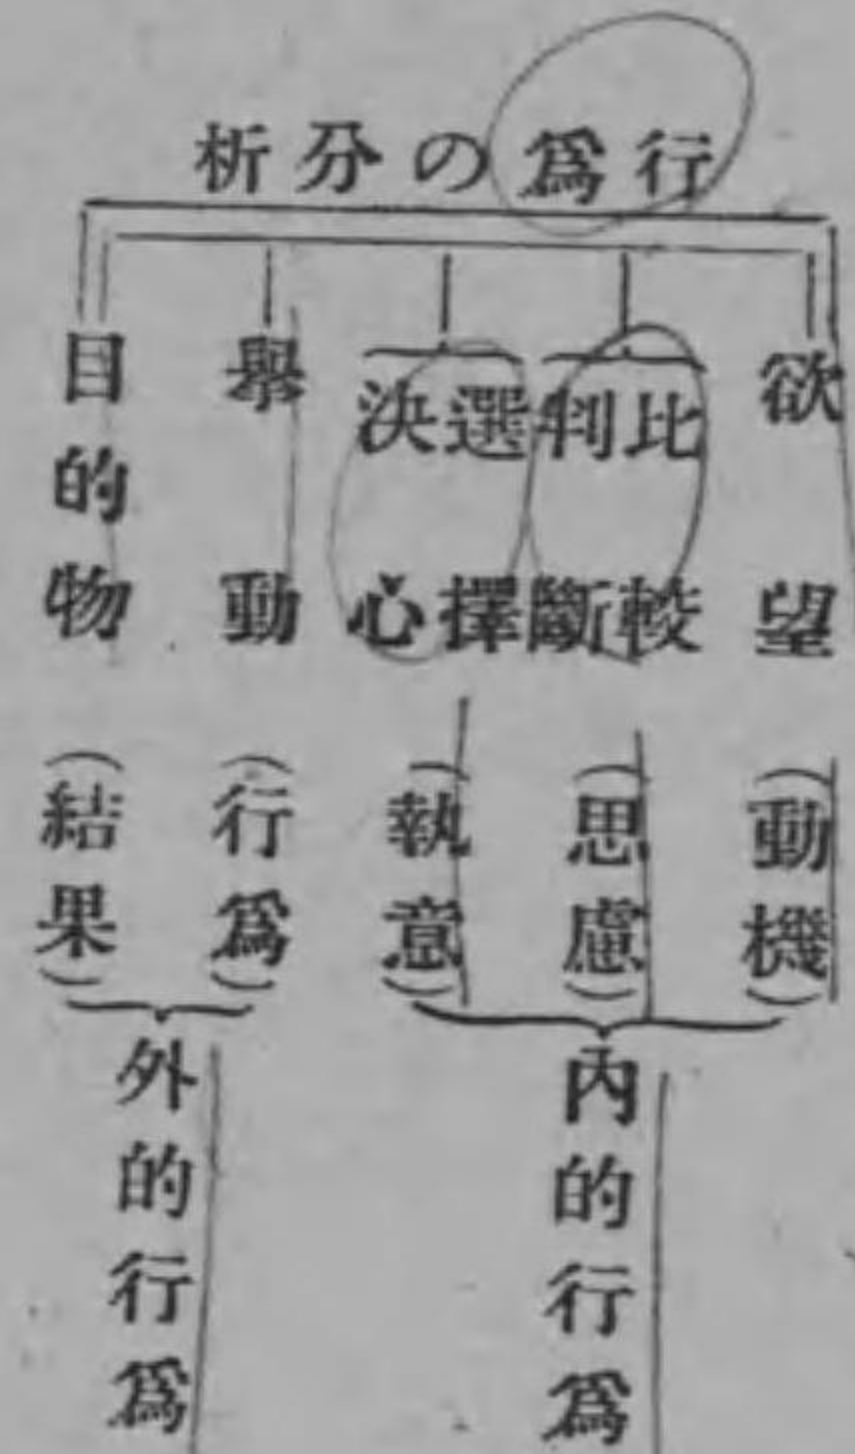 行爲の分析
欲望
(動機)
比較
判斷
(思慮)
選擇
決心
(執意)
內的行爲
擧動
(行爲)
目的物
(結果)
外的行爲